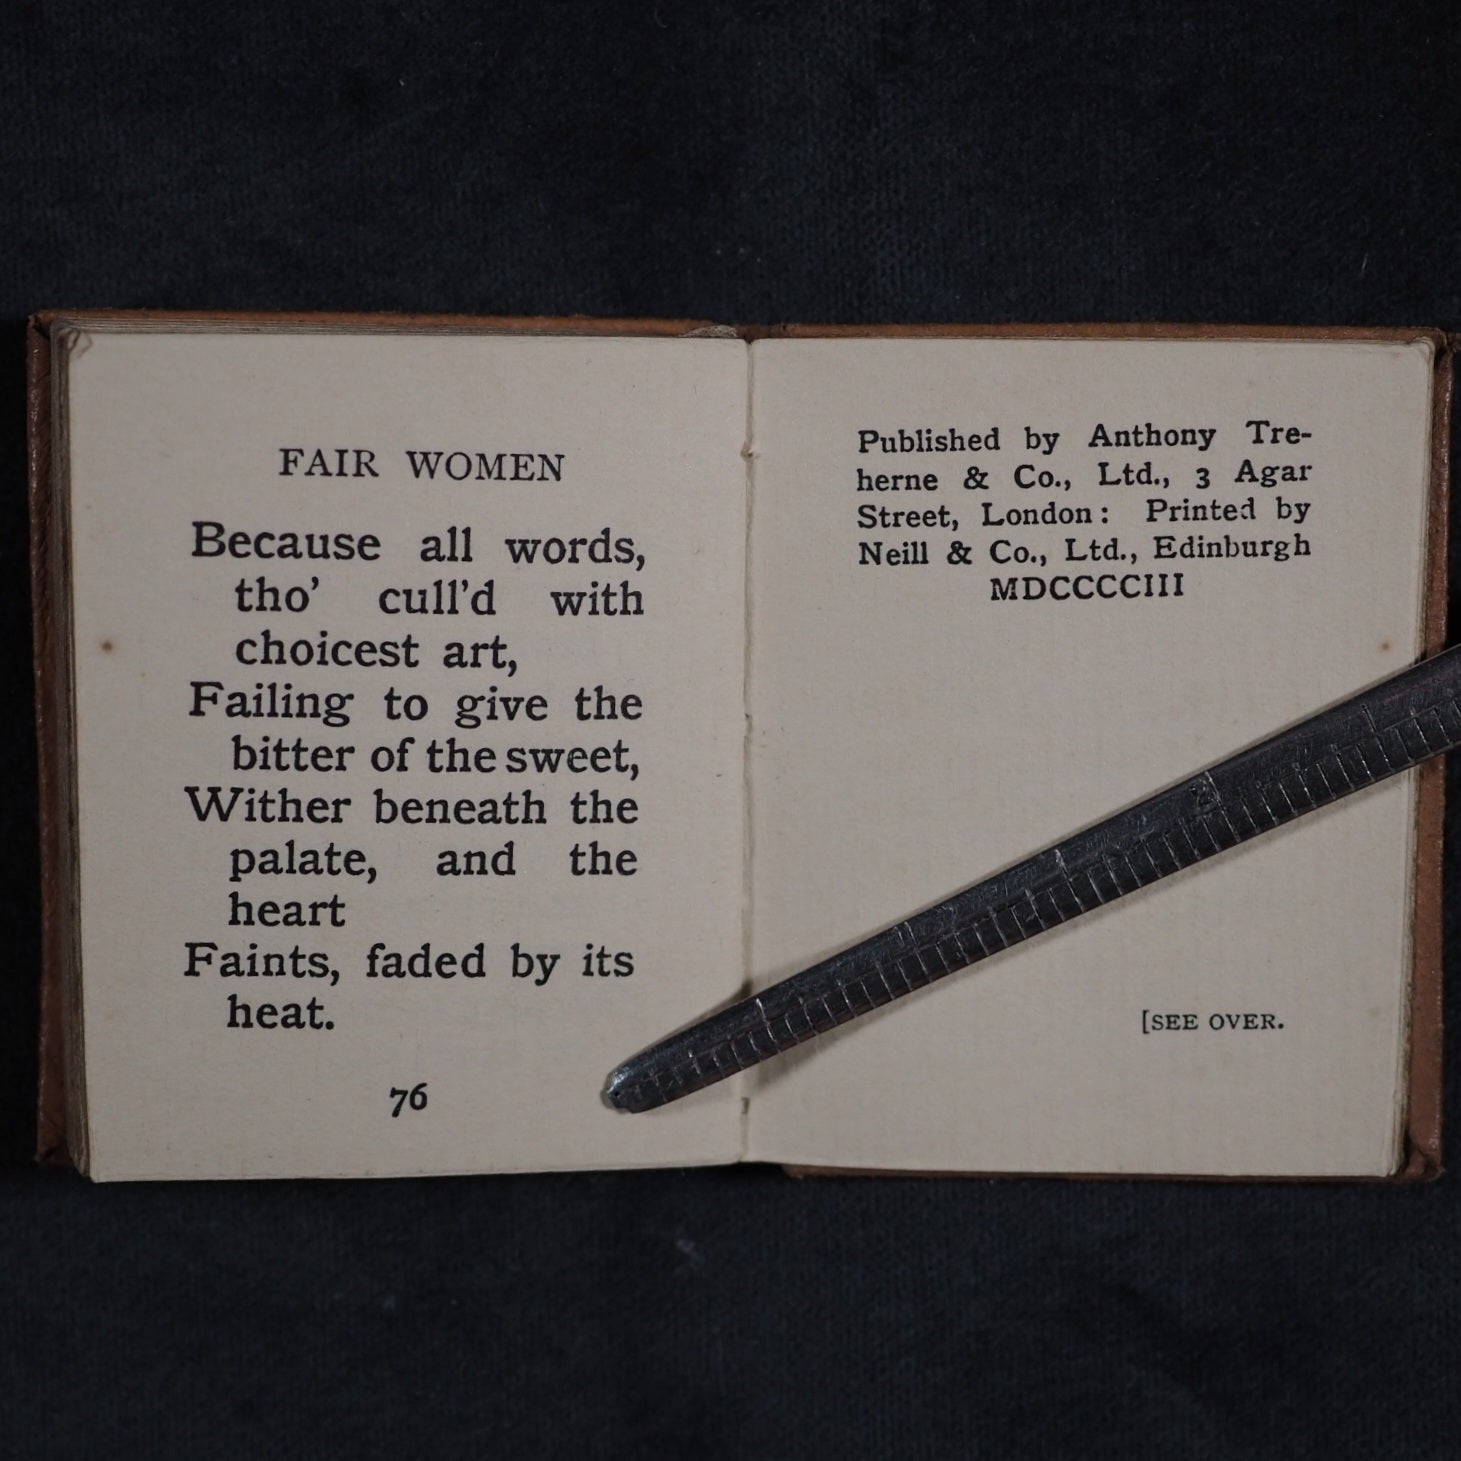 FAIR WOMEN
Because all words,
tho' cull'd with
choicest art,
Failing to give the
bitter of the sweet,
Wither beneath the
palate, and the
heart
Faints, faded by its
heat.
76
Published by Anthony Tre-
herne & Co., Ltd., 3 Agar
Street, London: Printed by
Neill & Co., Ltd., Edinburgh
MDCCCCIII
2
[SEE OVER.